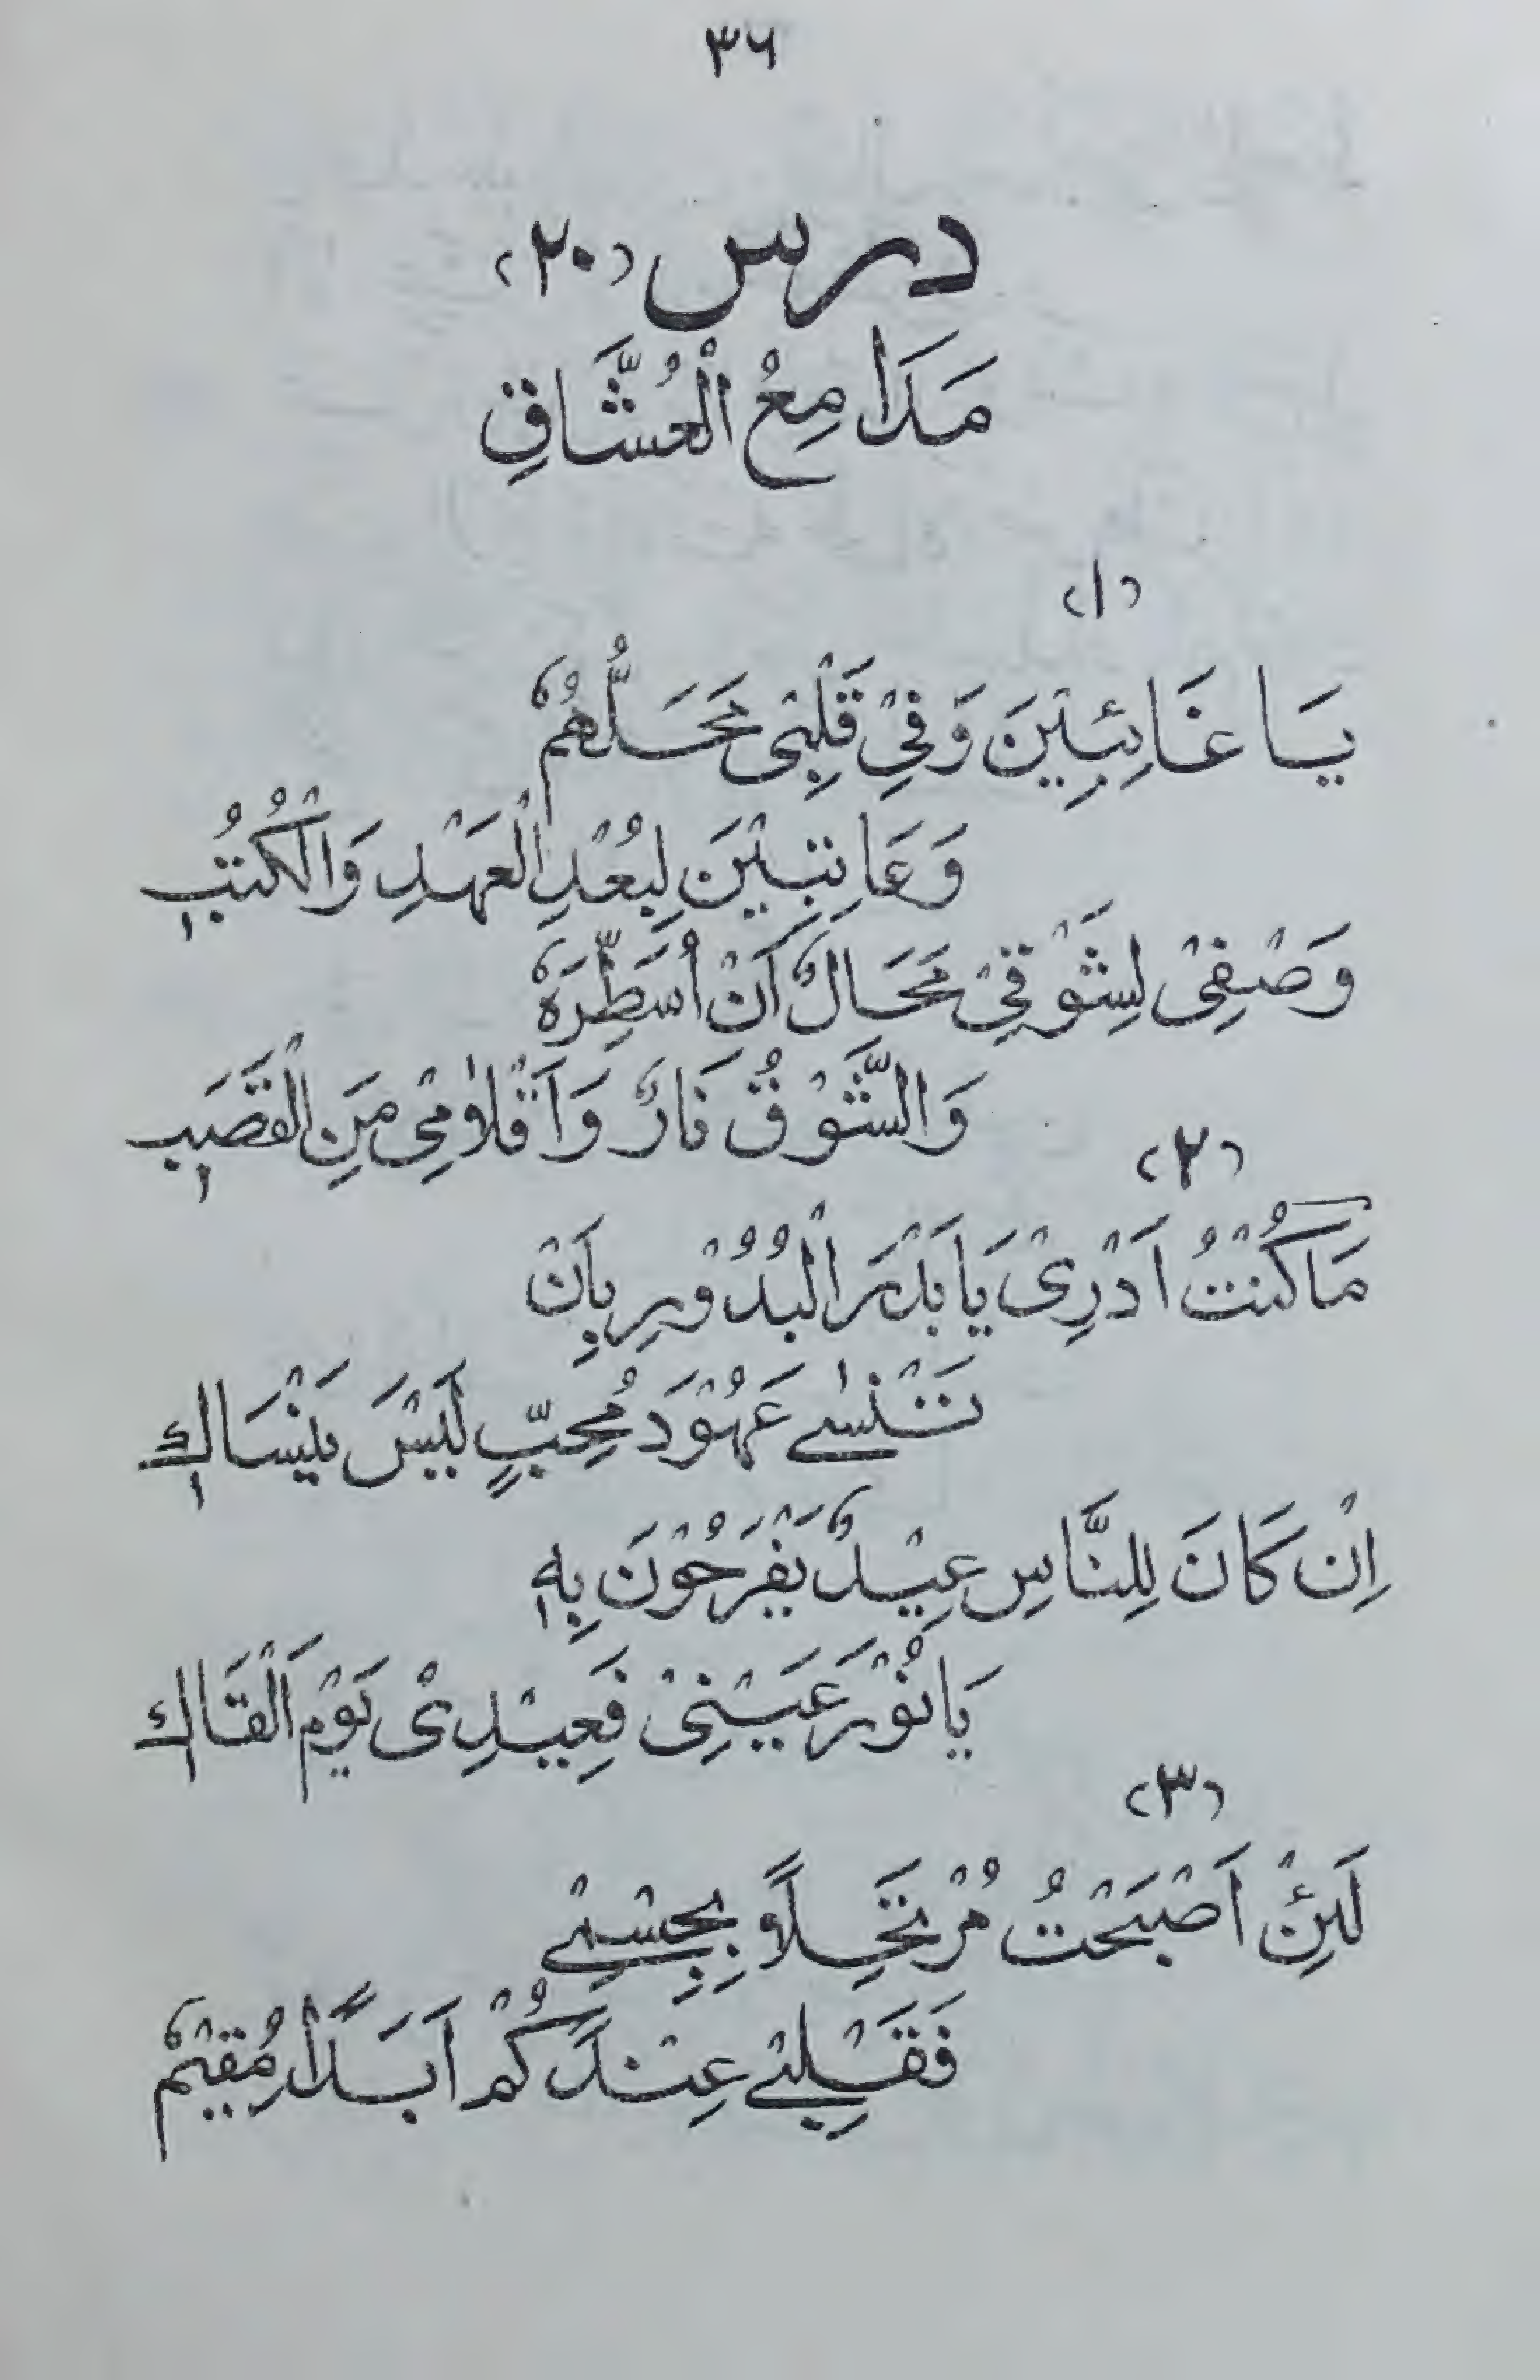 ٣٦
درس (٢٠)
مَدَامِعُ الْعُشَّاقِ
(١)
يَا غَائِبِيْنَ وَفِيْ قَلْبِيْ مَحَلُّهُمْ
وَعَاتِبِيْنَ لِبُعْدِ الْعَهْدِ وَالْكُتُبِ
وَصْفِيْ لِشَوْقِيْ مَحَالٌ اَنْ اُسَطِّرَهٗ
وَالشَّوْقُ نَارٌ وَاَقْلَامِيْ مِنَ الْقَصَبِ
(٢)
مَا كُنْتُ اَدْرِيْ يَا بَدْرَ الْبُدُوْرِ بِاَنْ
تَنْسٰے عَهُوْدَ مُحِبٍّ لَيْسَ يَنْسَاكِ
اِنْ كَانَ لِلنَّاسِ عِيْدٌ يَفْرَحُوْنَ بِهٖ
يَا نُوْرَ عَيْنِيْ فَعِيْدِيْ يَوْمَ اَلْقَاكِ
(٣)
لَئِنْ اَصْبَحْتُ مُرْتَحِلًا بِجِسْمِيْ
فَقَلْبِيْ عِنْدَكُمْ اَبَدًا مُقِيْمٌ